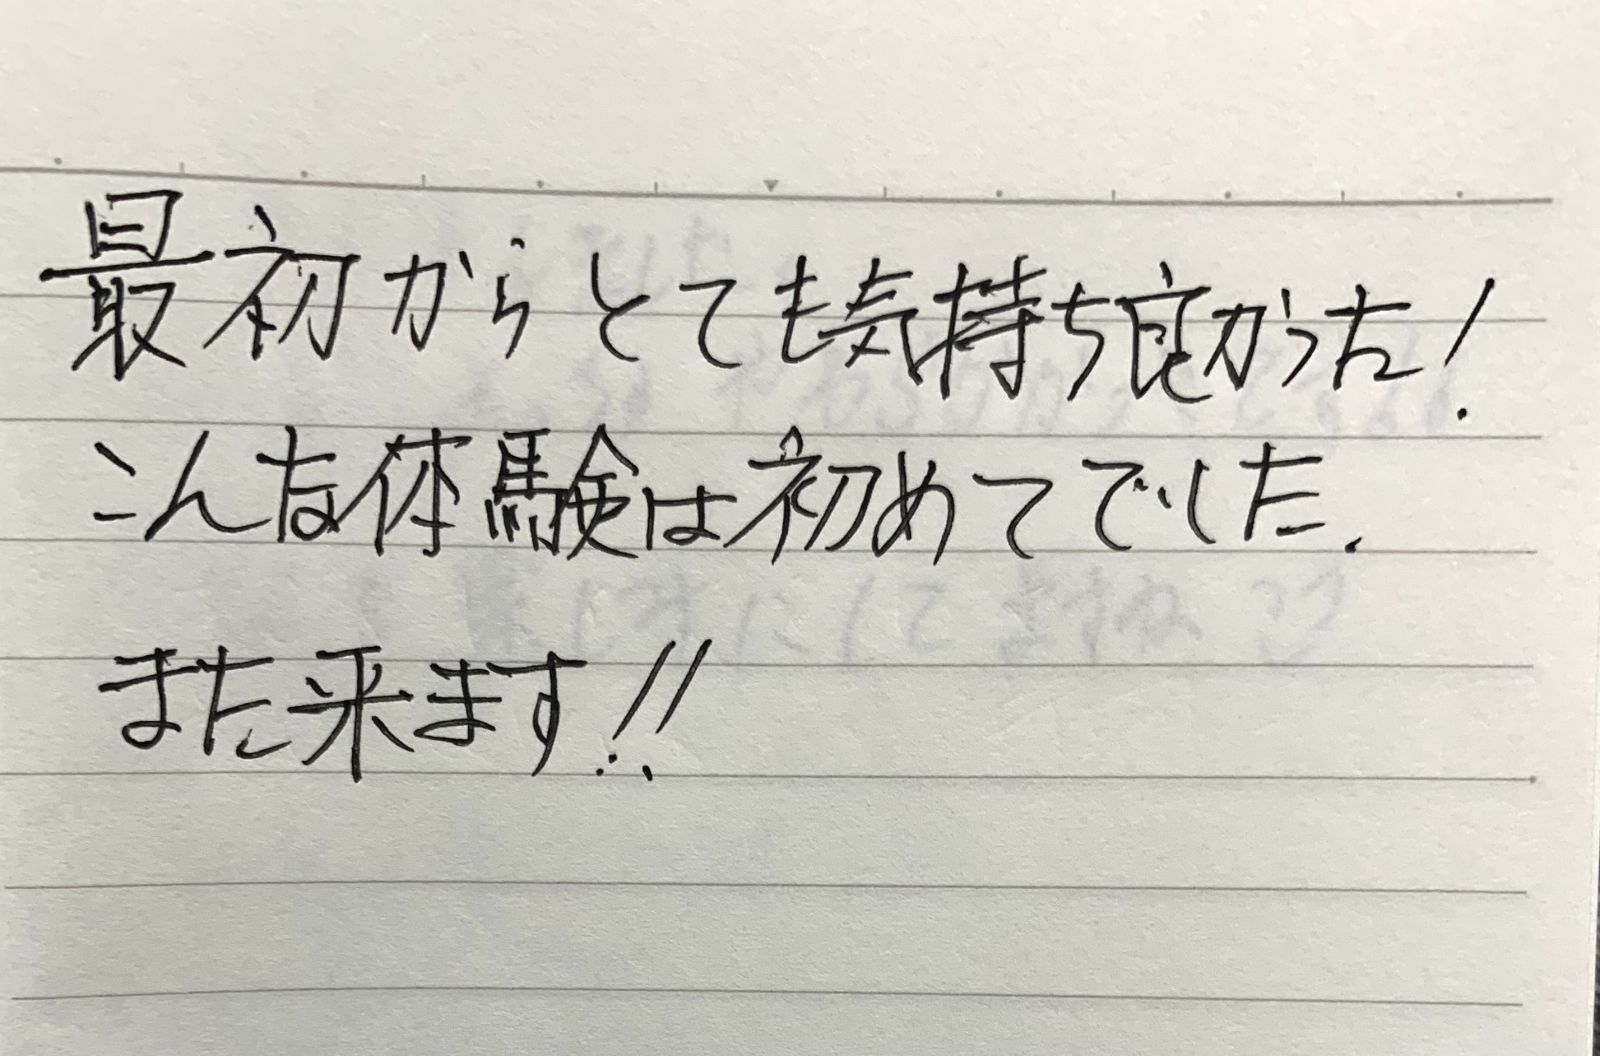 最初からとても気持ち良かった!
こんな体験は初めてでした.
また来ます!!